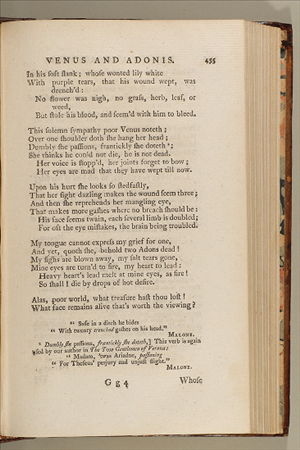 VENUS AND ADONIS. 455
In his soft flank; whose wonted lily white
With purple tears, that his wound wept, was
drench'd:
No flower was nigh, no grass, herb, leaf, or
weed,
But stole his blood, and seem'd with him to bleed.
This solemn sympathy poor Venus noteth;
Over one shoulder doth she hang her head;
Dumbly she passions, frantickly she doteth ⁴;
She thinks he could not die, he is not dead.
Her voice is stopp'd, her joints forget to bow;
Her eyes are mad that they have wept till now.
Upon his hurt she looks so stedfastly,
That her sight dazling makes the wound seem three;
And then she reprehends her mangling eye,
That makes more gashes where no breach should be:
His face seems twain, each several limb is doubled;
For oft the eye mistakes, the brain being troubled.
My tongue cannot express my grief for one,
And yet, quoth she, behold two Adons dead!
My sighs are blown away, my salt tears gone,
Mine eyes are turn'd to fire, my heart to lead:
Heavy heart's lead melt at mine eyes, as fire!
So shall I die by drops of hot desire.
Alas, poor world, what treasure hast thou lost!
What face remains alive that's worth the viewing?
" Safe in a ditch he bides
" With twenty trenched gashes on his head."
MALONE.
⁴ Dumbly she passions, frantickly she doteth,] This verb is again
used by our author in The Two Gentlemen of Verona:
" Madam, 'twas Ariadne, passioning
" For Theseus' perjury and unjust flight."
MALONE.
G g 4 Whose